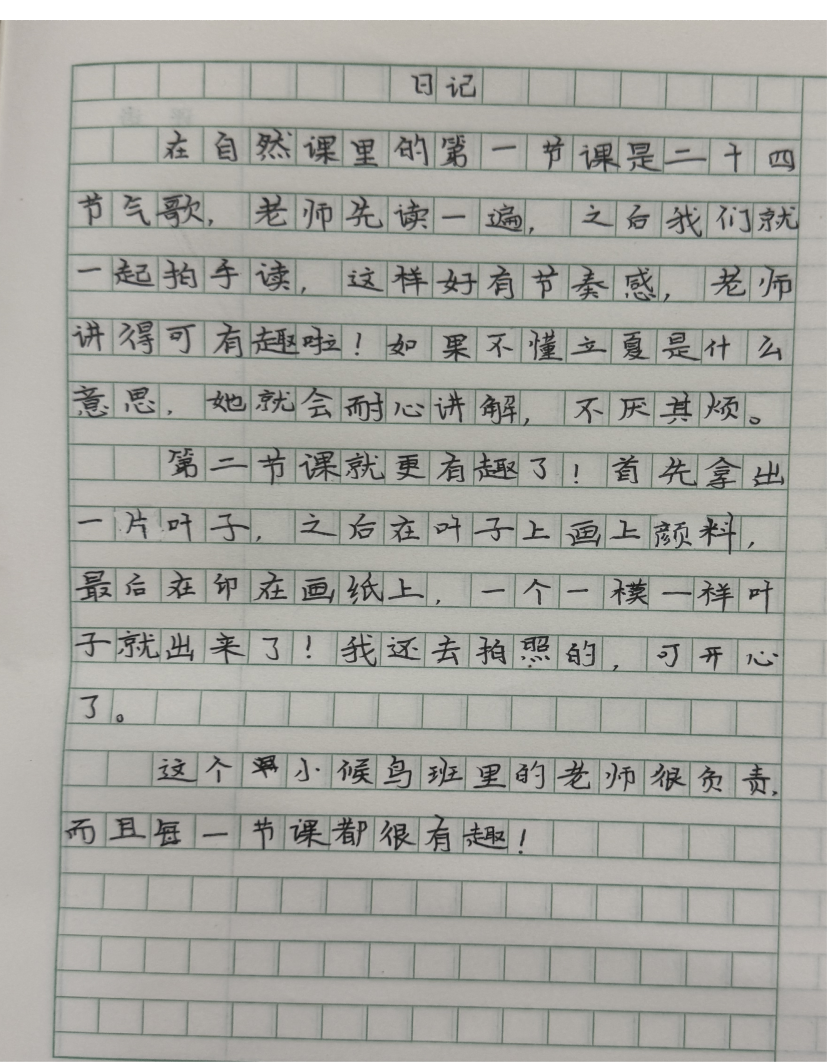 日记
在自然课里的第一节课是二十四
节气歌，老师先读一遍，之后我们就
一起拍手读，这样好有节奏感，老师
讲得可有趣啦！如果不懂立夏是什么
意思，她就会耐心讲解，不厌其烦。
第二节课就更有趣了！首先拿出
一片叶子，之后在叶子上画上颜料，
最后在印在画纸上，一个一模一样叶
子就出来了！我还去拍照的，可开心
了。
这个小候鸟班里的老师很负责，
而且每一节课都很有趣！